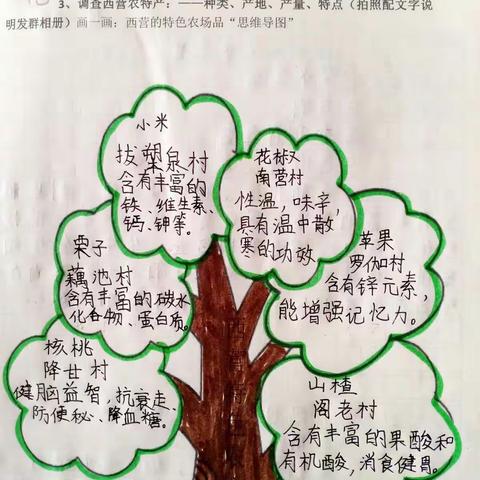 3、调查西营农特产：——种类、产地、产量、特点（拍照配文字说
明发群相册）画一画：西营的特色农场品“思维导图”
小米
拔槊泉村
含有丰富的
铁、维生素、
钙、钾等。
花椒
南营村
性温，味辛，
具有温中散
寒的功效
栗子
藕池村
含有丰富的碳水
化合物、蛋白质。
苹果
罗伽村
含有锌元素，
能增强记忆力。
核桃
降甘村
健脑益智，抗衰老、
防便秘、降血糖。
山楂
阁老村
含有丰富的果酸和
有机酸，消食健胃。